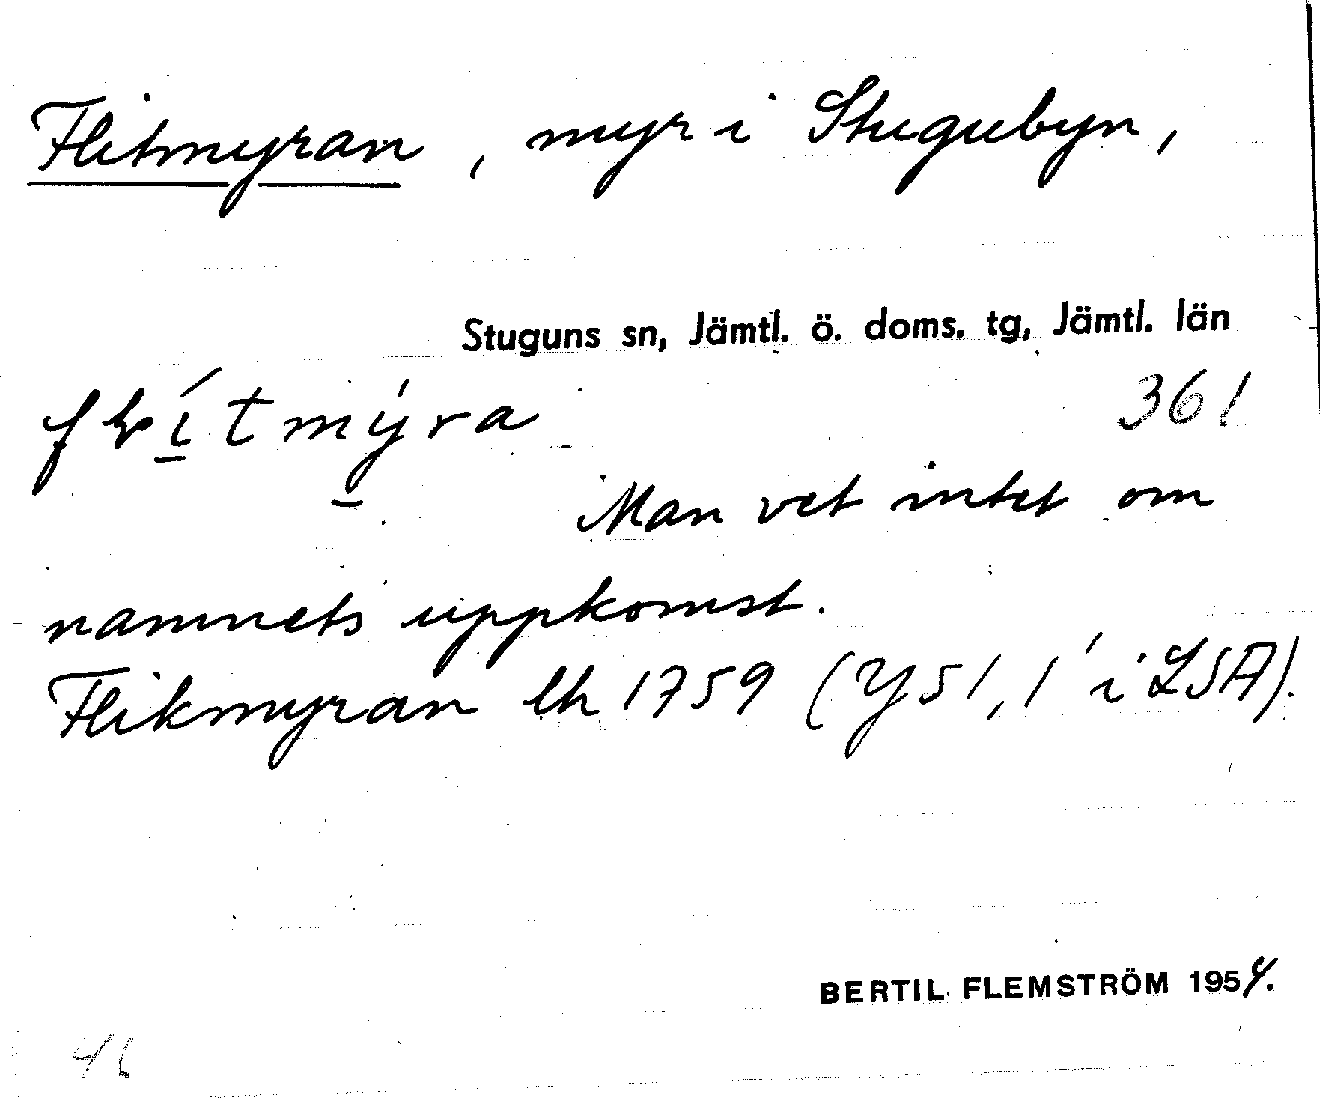 Flitmyran, myr i Stugubyn,
Stuguns sn, Jämtl. ö. doms. tg, Jämtl. län
361
Man vet intet om
namnets uppkomst.
Flikmyran lh 1759 (Y51, 1' i LSA).
BERTIL FLEMSTRÖM 1954.